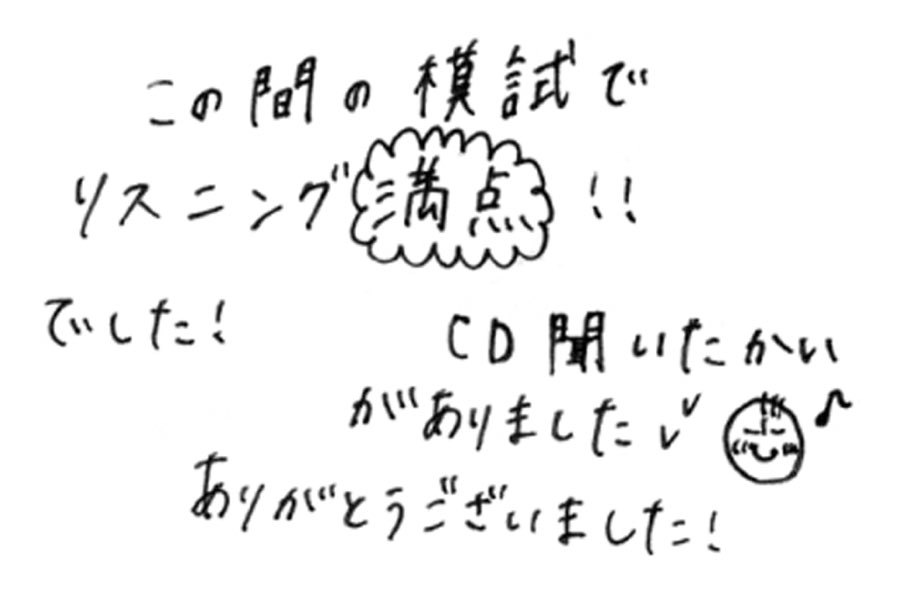 この間の模試で
リスニング満点!!
でした!
CD聞いたかい
がありました✓✓
ありがとうございました!